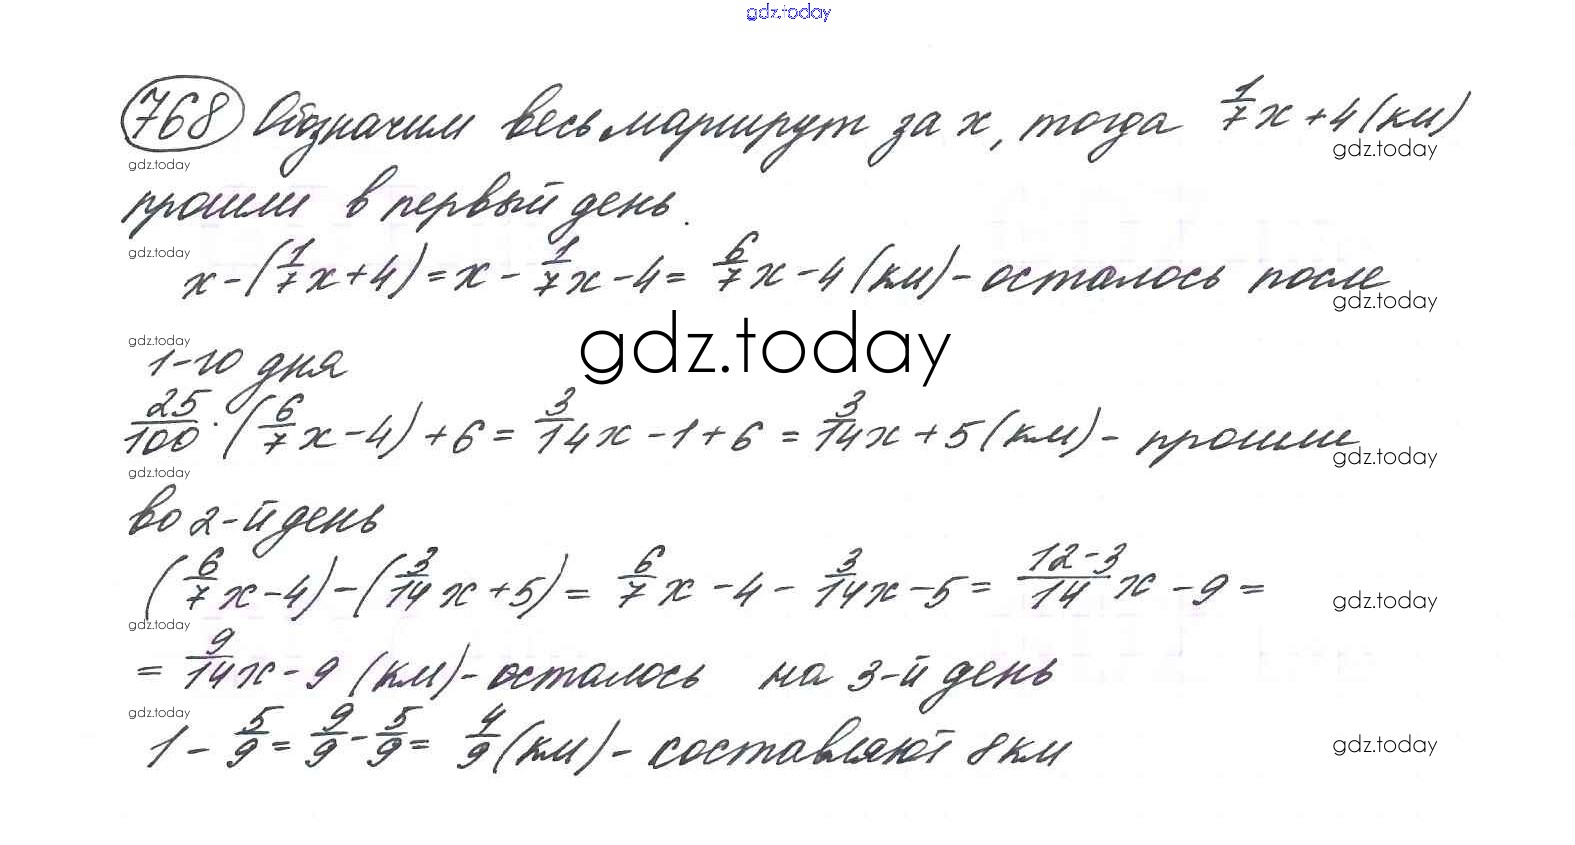 gdz.today
768 Обозначим весь маршрут за x, тогда 1/7 x + 4 (км)
gdz.today
gdz.today
прошли в первый день.
gdz.today
x - (1/7 x + 4) = x - 1/7 x - 4 = 6/7 x - 4 (км) - осталось после
gdz.today
gdz.today
gdz.today
1-го дня
25/100 · (6/7 x - 4) + 6 = 3/14 x - 1 + 6 = 3/14 x + 5 (км) - прошли
gdz.today
gdz.today
во 2-й день
(6/7 x - 4) - (3/14 x + 5) = 6/7 x - 4 - 3/14 x - 5 = 12-3/14 x - 9 =
gdz.today
gdz.today
= 9/14 x - 9 (км) - осталось на 3-й день
gdz.today
1 - 5/9 = 9/9 - 5/9 = 4/9 (км) - составляют 8 км
gdz.today